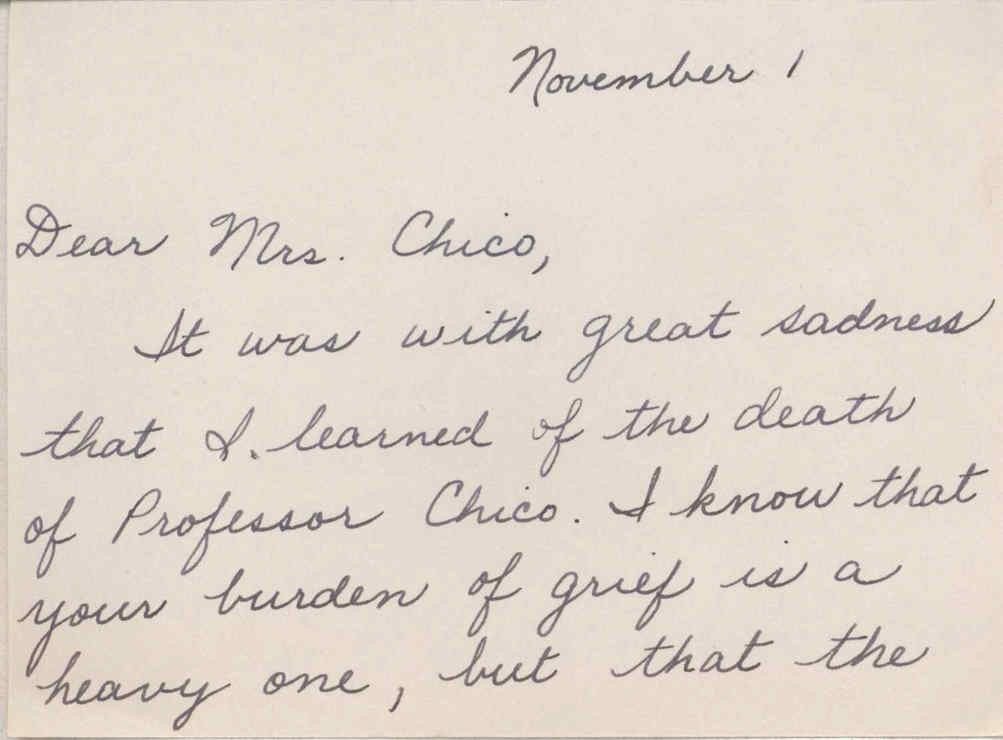 November 1
Dear Mrs. Chico,
It was with great sadness
that I. learned of the death
of Professor Chico. I know that
your burden of grief is a
heavy one, but that the